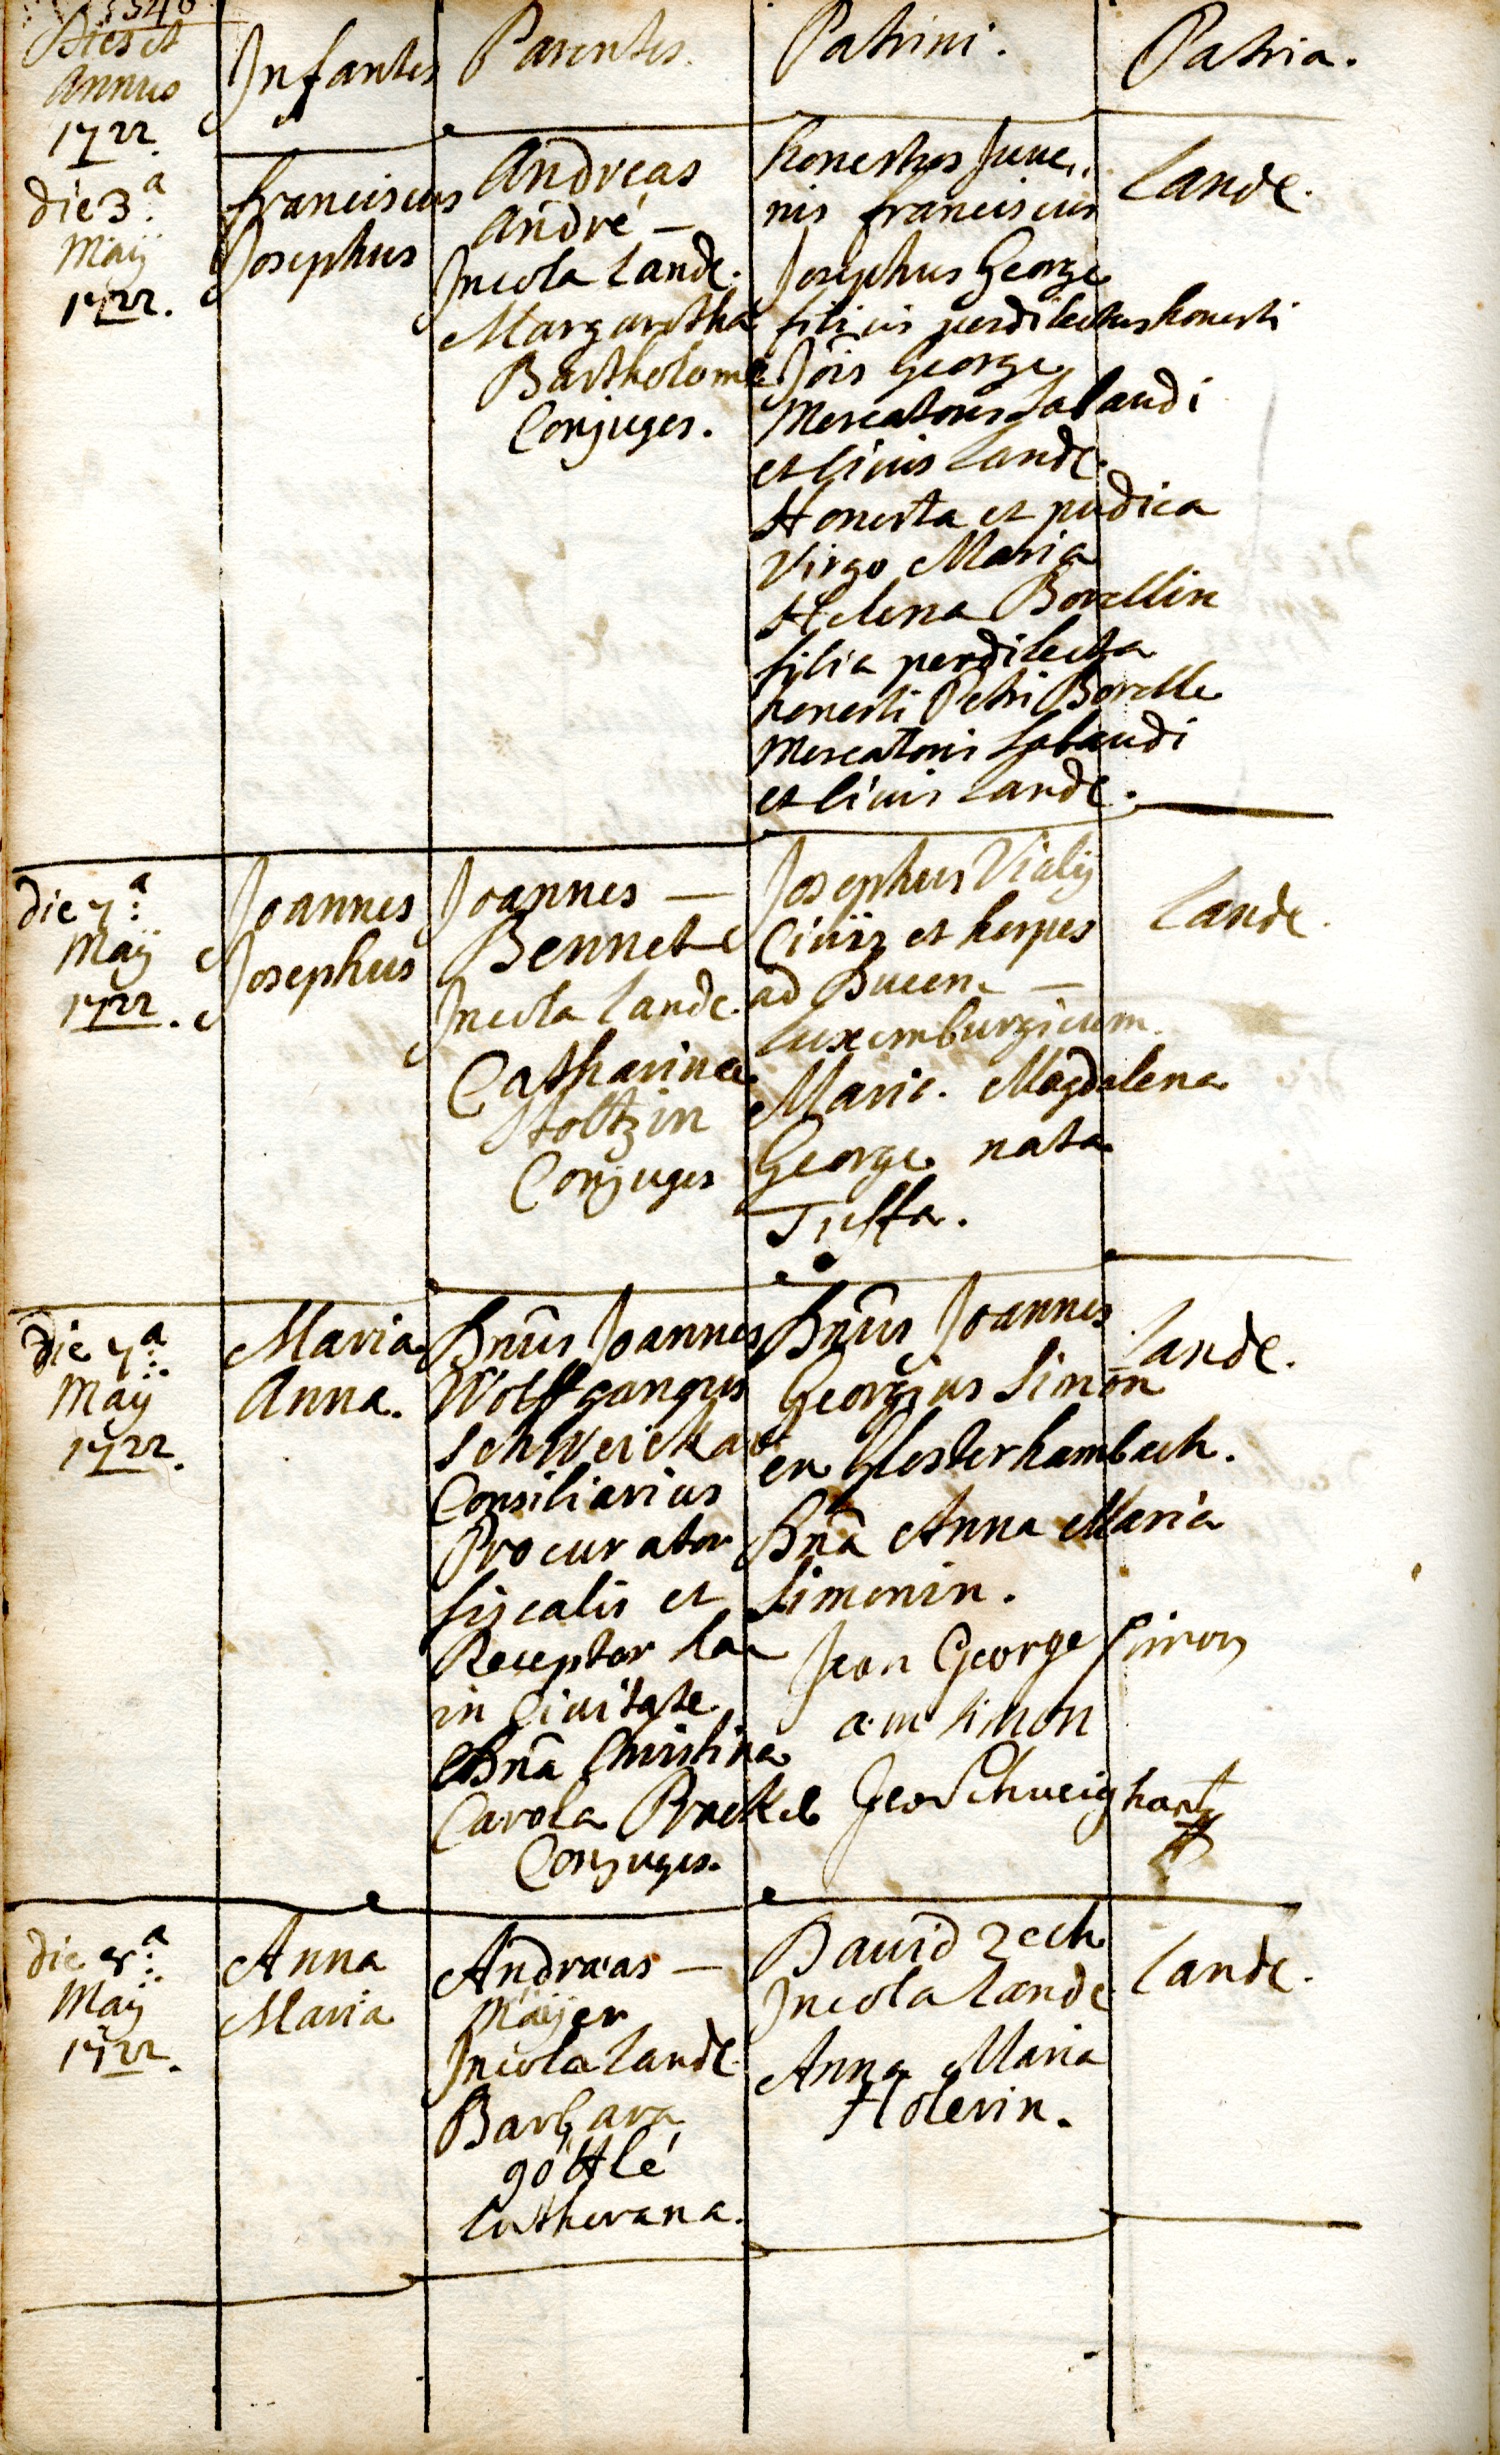 Dies et
Annus
1722.
Infantes
Parentes.
Patrini.
Patria.
die 3.a
Maÿ
1722.
Franciscus
Josephus
Andreas
André —
Incola Land.
Margaretha
Bartholome
Conjuges.
Honestus Juve..
nis Franciscus
Josephus George
filius perdilectus honesti
Jois George
Mercatoris Sabaudi
et Civis Land.
Honesta et pudica
Virgo Maria
Helena Borellin
filia perdilecta
honesti Petri Borelle
Mercatoris Sabaudi
et Civis Land.
Lande.
die 7.a
Maÿ
1722.
Joannes
Josephus
Joannes —
Bennet
Incola Land.
Catharina
Stoltzin
Conjuges
Josephus Vialy
Civis et hospes
ad Ducem —
Luxemburgicum.
Maria Magdalena
George nata
Lande.
die 7.a
Maÿ
1722.
Maria
Anna.
Dnus Joannes
Wolffgangus
Schweickart
Consiliarius
Procurator
fiscalis et
Receptor hac
in Civitate
Dna Christina
Carola
Conjuges.
Dnus Joannes
Georgius Simon
ex Closterhambach.
Dna Anna Maria
Simonin.
Jean George Simon
a. m Simon
Schweighart
Lande.
die 8.a
Maÿ
1722.
Anna
Maria
Andreas —
Maÿer
Incola Land.
Barbara
göttlé
Lutherana.
David Zech
Incola Lande
Anna Maria
Holerin.
Lande.